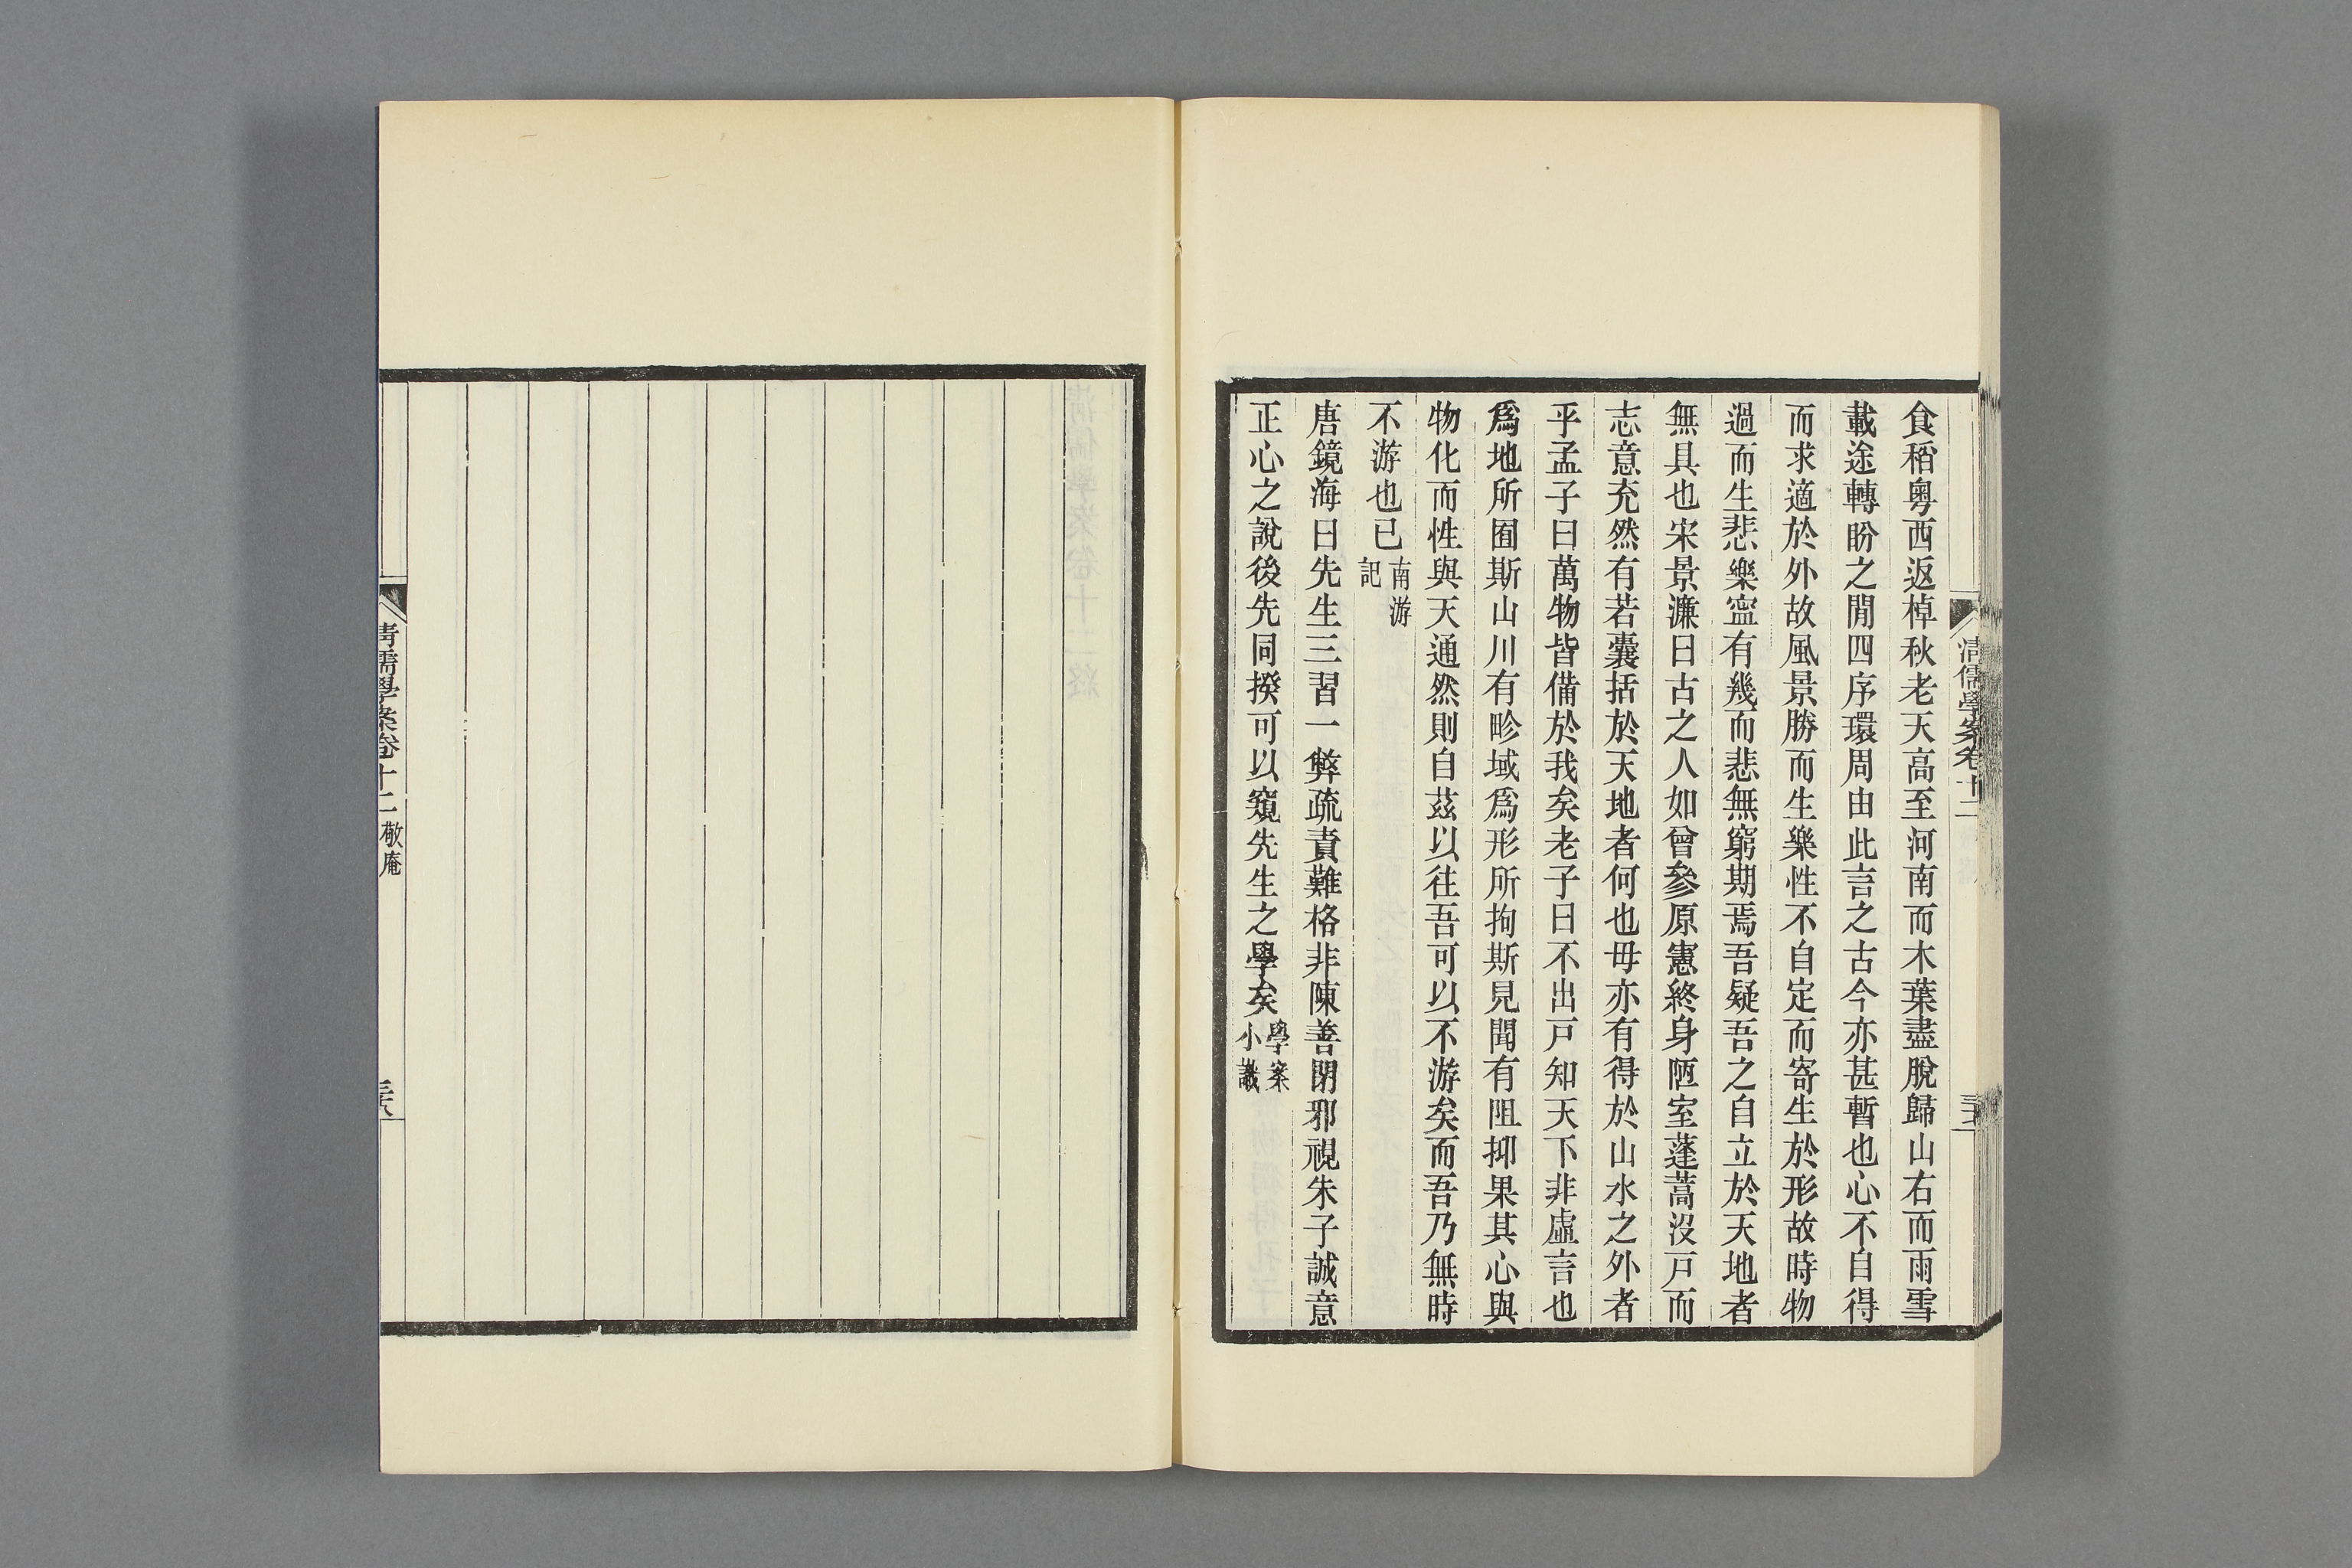 清儒學案卷十二
食稻粵西返棹秋老天高至河南而木葉盡脫歸山右而雨雪
載途轉盼之閒四序環周由此言之古今亦甚暫也心不自得
而求適於外故風景勝而生樂性不自定而寄生於形故時物
過而生悲樂寍有幾而悲無窮期焉吾疑吾之自立於天地者
無具也宋景濂曰古之人如曾參原憲終身陋室蓬蒿沒戶而
志意充然有若囊括於天地者何也毋亦有得於山水之外者
乎孟子曰萬物皆備於我矣老子曰不出戶知天下非虛言也
爲地所囿斯山川有畛域爲形所拘斯見聞有阻抑果其心與
物化而性與天通然則自茲以往吾可以不游矣而吾乃無時
不游也已南游
記
唐鏡海曰先生三習一弊疏責難格非陳善閉邪視朱子誠意
正心之說後先同揆可以窺先生之學矣學案
小識
清儒學案卷十二 敬庵
三十八